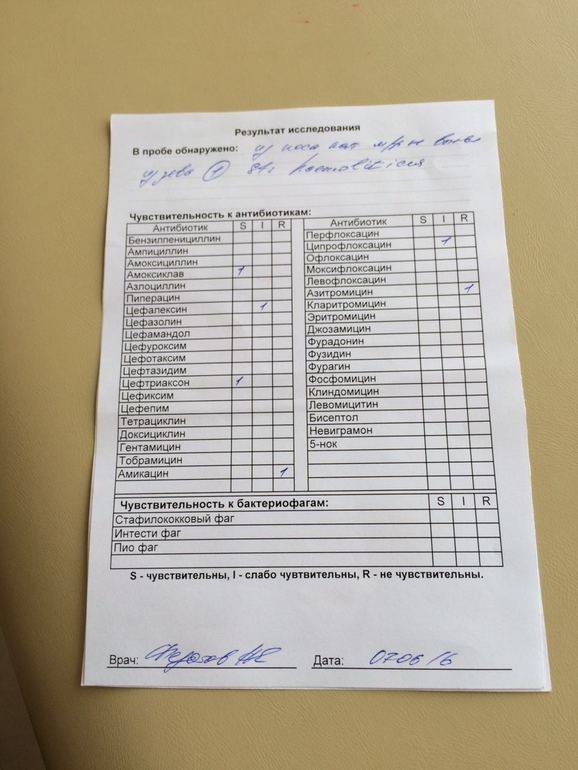 Результат исследования
В пробе обнаружено: из носа пат м/ф не
из зева ⊕ Str haemolyticus
Чувствительность к антибиотикам:
Антибиотик S I R
Бензилпенициллин
Ампициллин
Амоксициллин
Амоксиклав 1
Азлоциллин
Пиперацин
Цефалексин 1
Цефазолин
Цефамандол
Цефуроксим
Цефотаксим
Цефтазидим
Цефтриаксон 1
Цефиксим
Цефепим
Тетрациклин
Доксициклин
Гентамицин
Тобрамицин
Амикацин 1
Антибиотик S I R
Перфлоксацин
Ципрофлоксацин 1
Офлоксацин
Моксифлоксацин
Левофлоксацин
Азитромицин 1
Кларитромицин
Эритромицин
Джозамицин
Фурадонин
Фузидин
Фурагин
Фосфомицин
Клиндомицин
Левомицитин
Бисептол
Невиграмон
5-нок
Чувствительность к бактериофагам: S I R
Стафилококковый фаг
Интести фаг
Пио фаг
S - чувствительны, I - слабо чувтвительны, R - не чувствительны.
Врач: Дата: 0706 16